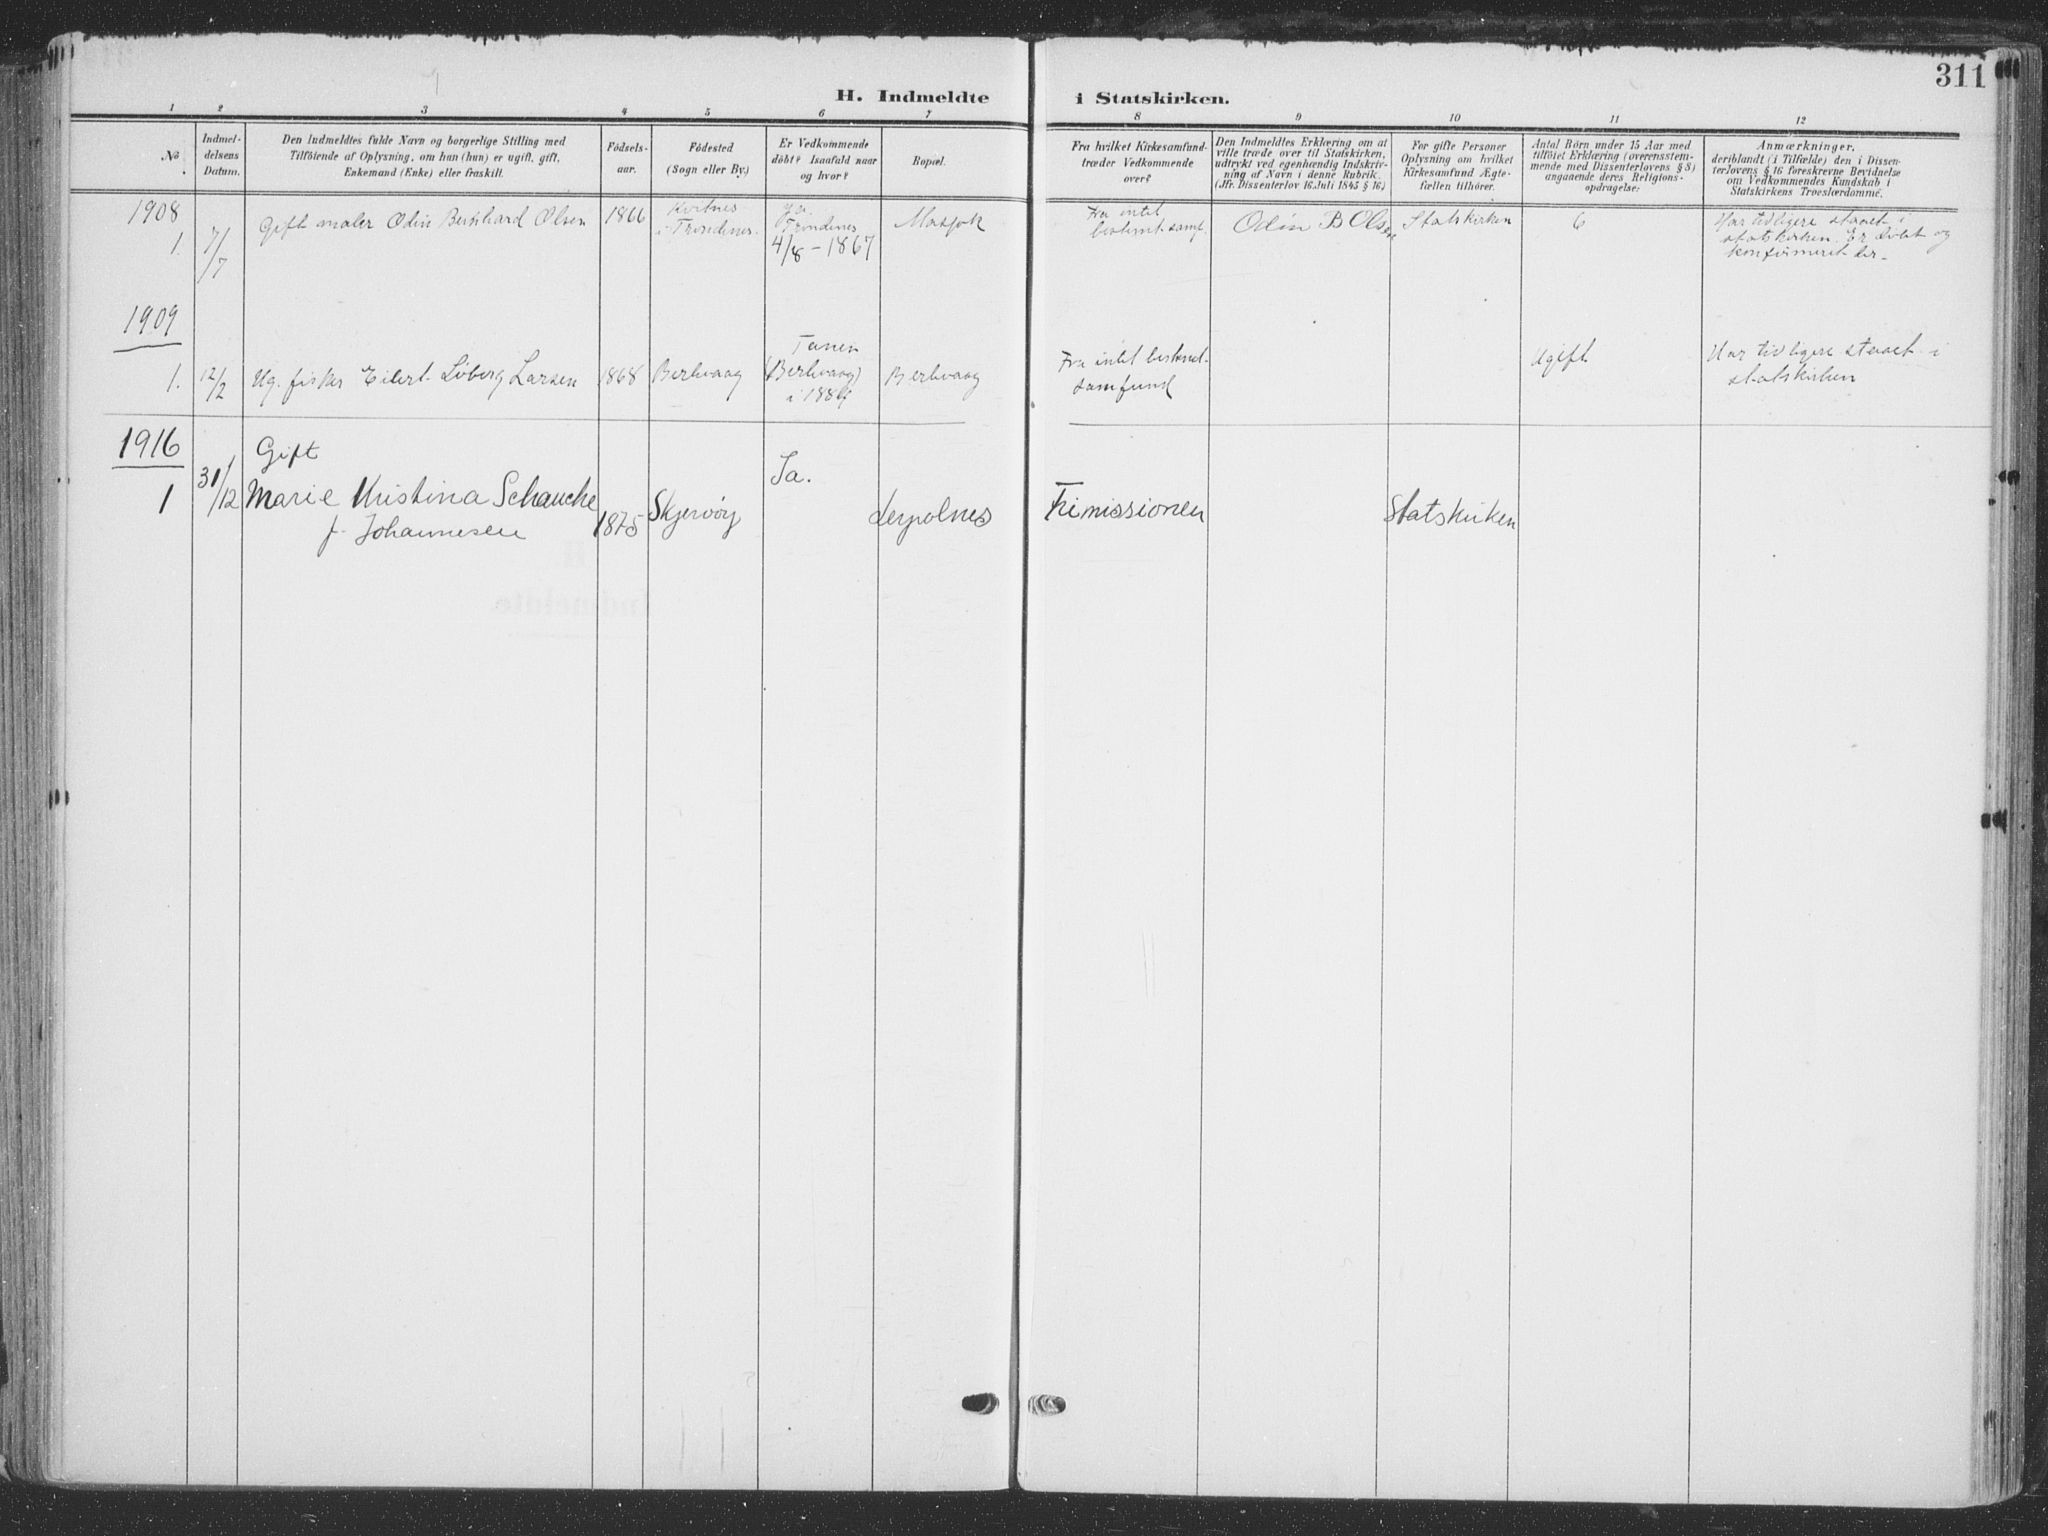 311
H. Indmeldte i Statskirken.
1 2 3 4 5 6 7 8 9 10 11 12
No.
Indmel-
delsens
Datum.
Den Indmeldtes fulde Navn og borgerlige Stilling med
Tilföiende af Oplysning, om han (hun) er ugift, gift,
Enkemand (Enke) eller fraskilt.
Födsels-
aar.
Födested
(Sogn eller By.)
Er Vedkommende
döbt? Isaafald naar
og hvor?
Bopæl.
Fra hvilket Kirkesamfund
træder Vedkommende
over?
Den Indmeldtes Erklæring om at
ville træde over til Statskirken,
udtrykt ved egenhændig Indskriv-
ning af Navn i denne Rubrik.
(Jfr. Dissenterlov 16 Juli 1845 § 16.)
For gifte Personer
Oplysning om hvilket
Kirkesamfund Ægte-
fællen tilhörer.
Antal Börn under 15 Aar med
tilföiet Erklæring (overensstem-
mende med Dissenterlovens § 8)
angaaende deres Religions-
opdragelse:
Anmærkninger,
deriblandt (i Tilfælde) den i Dissen-
terlovens § 16 foreskrevne Bevidnelse
om Vedkommendes Kundskab i
Statskirkens Troeslærdomme.
1908
1.
7/7
Gift maler Odin Bernhard Olsen
1866
Kvitnes
i Trondenes.
Ja.
Trondenes
4/8 - 1867
Masjok
Fra intet
bestemt samf.
Odin B Olsen
Statskirken
6
Har tidligere staaet i
statskirken. Er döbt og
konfirmeret der.
1909
1.
12/2
Ug. fisker Eilert Löberg Larsen
1868
Berlevaag
Tanen
(Berlevaag)
i 1884
Berlevaag
Fra intet bestemt
samfund
Ugift
Har tidligere staaet i
statskirken
1916
1
31/12
Gift
Marie Kristina Schanche
f. Johannesen
1875
Skjervöy
Ja.
Leypolnes
Frimissionen
Statskirken
H
Indmeldte